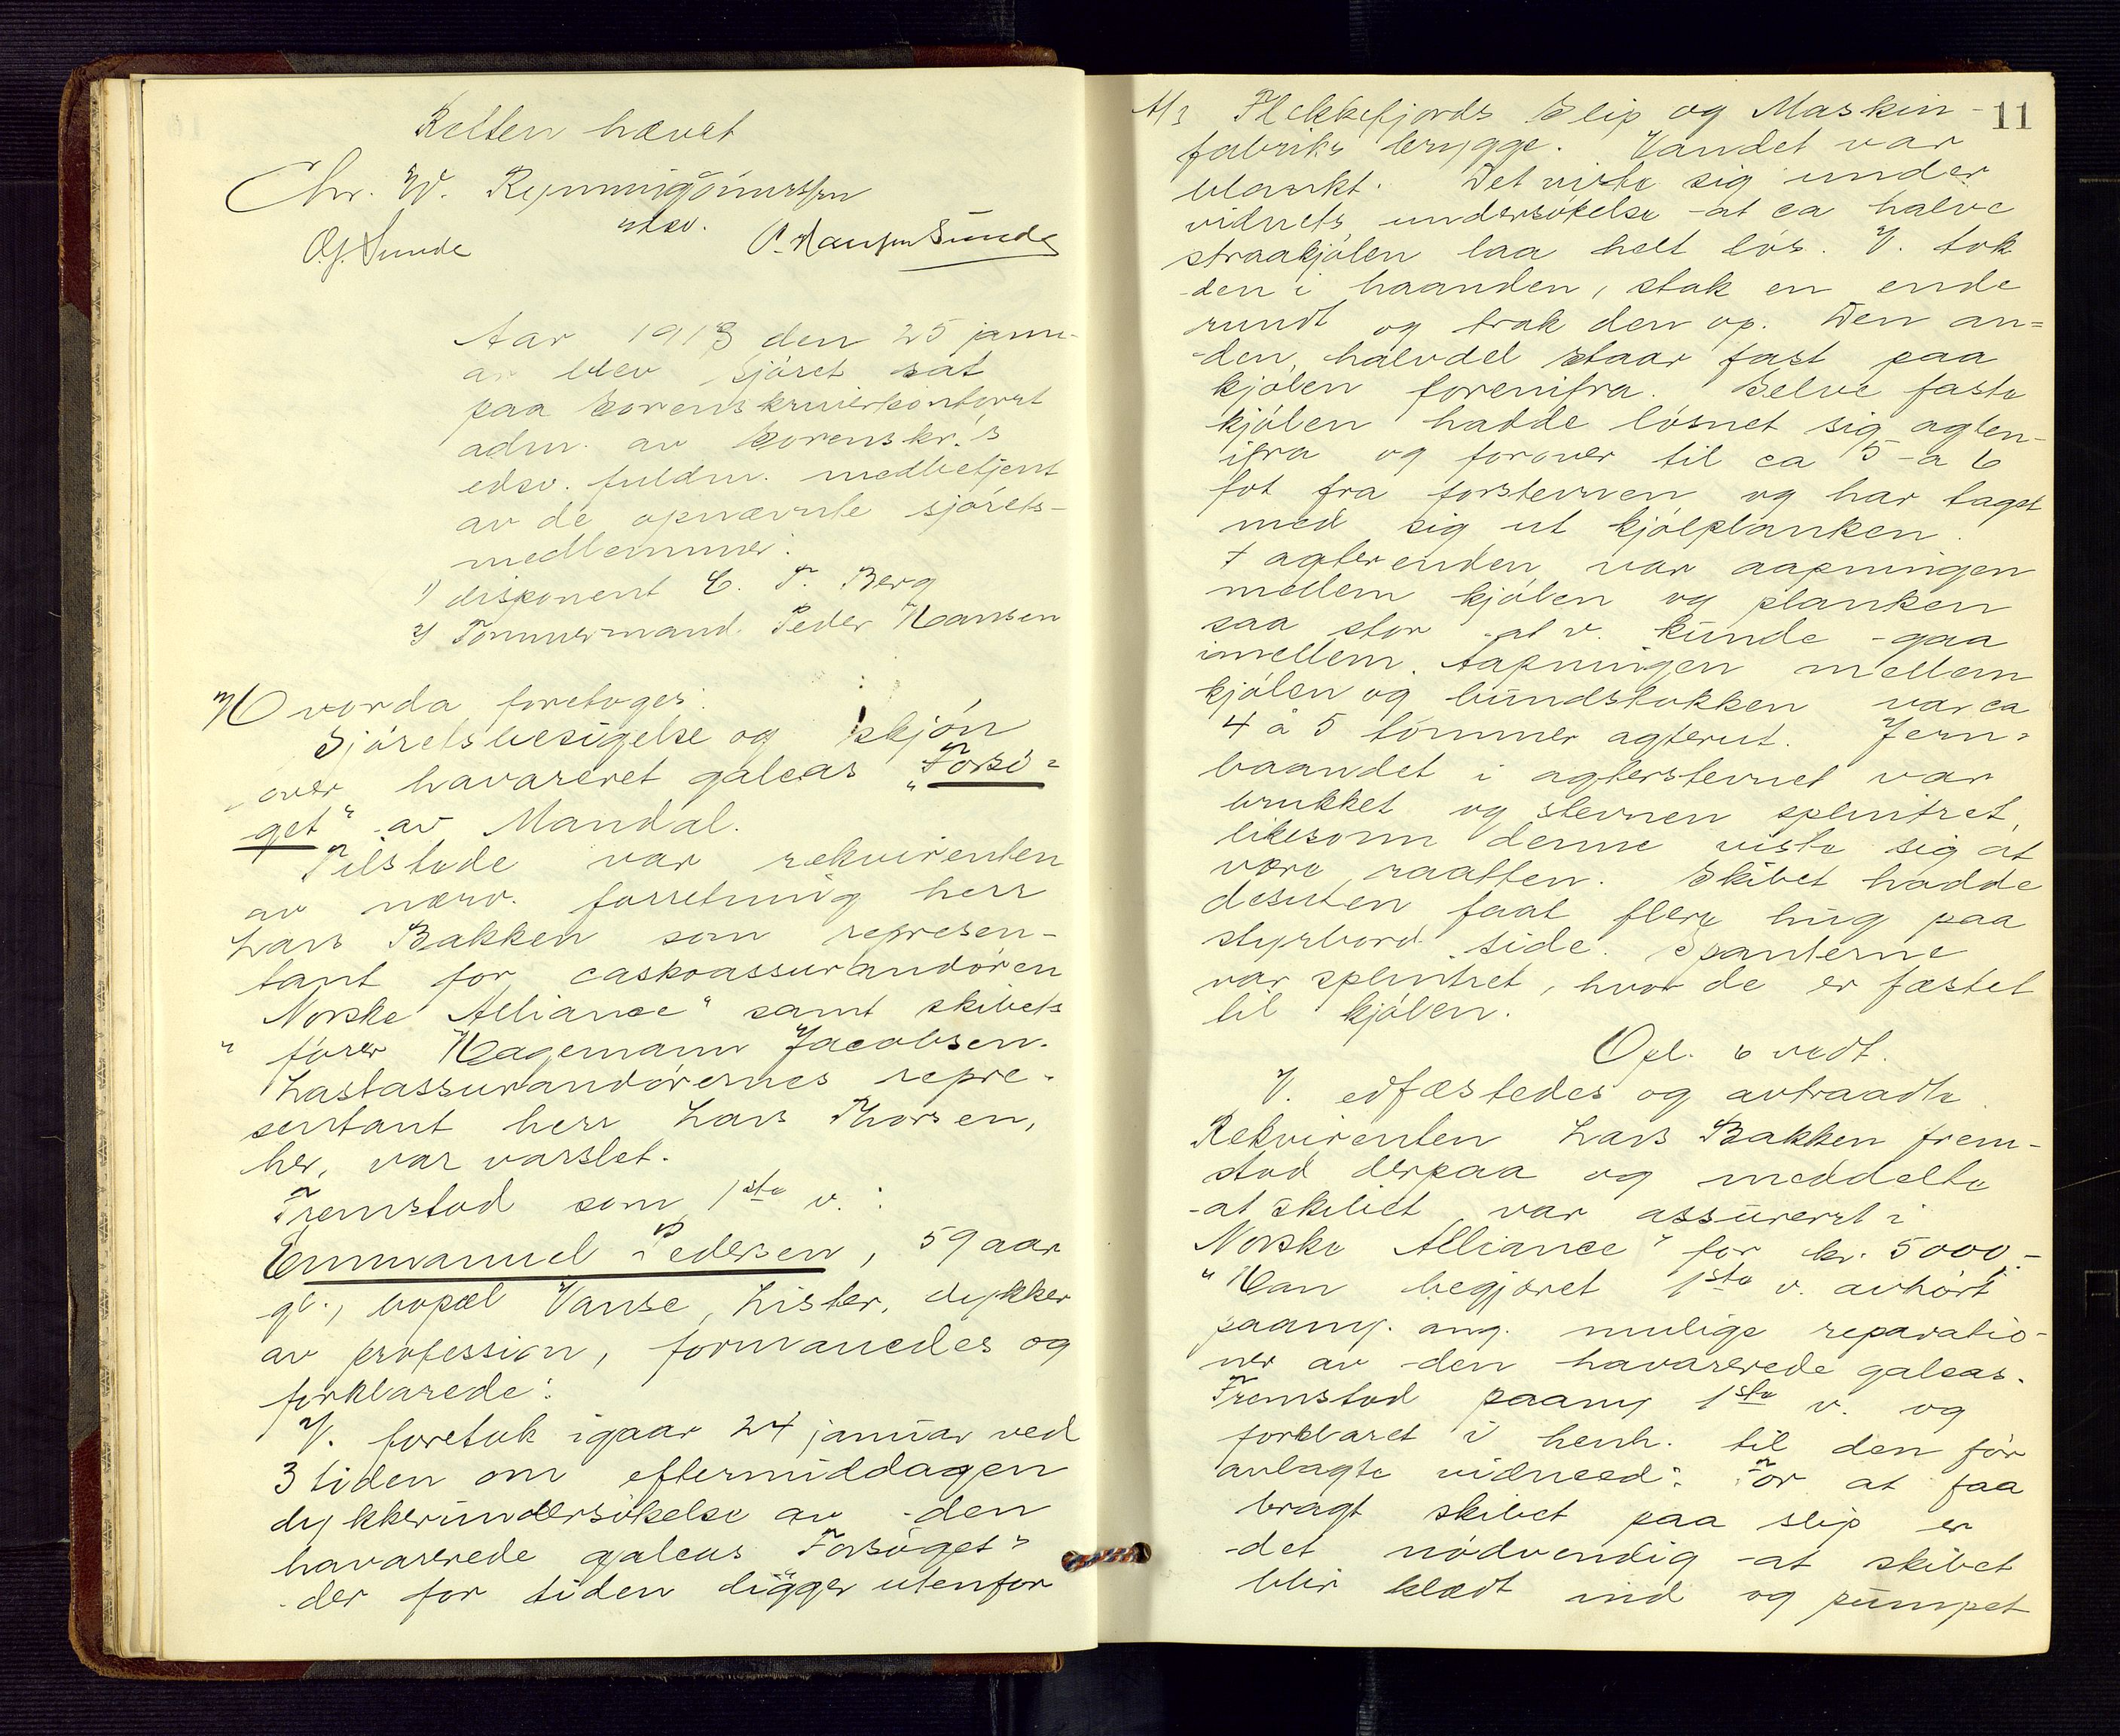 Retten hævet
Chr. W.
edsv.
O.J. Sunde P. Hansen Sunde
Aar 1913 den 25 janu-
ar blev sjøret sat
paa sorenskriverkontoret
adm. av sorenskr.'s
edsv. fuldm. medbetjent
av de opnævnte sjørets-
medlemmer:
1) disponent C. T. Berg
2) Tømmermand Peder Hansen
Hvorda foretoges:
Sjøretsbesigtelse og skjøn
over havareret galeas "Forsø-
get" av Mandal.
Tilstede var rekvirenten
av nærv. forretning herr
Lars Bakken som represen-
tant for caskoassurandøren
"Norske Alliance" samt skibets
fører Hagemann Jacobsen.
Lastassurandørernes repre-
sentant herr Lars Thorsen,
her, var varslet.
Fremstod som 1ste v.:
Emmanuel Pedersen, 59 aar
gl., bopæl Vanse, Lister, dykker
av profession, formanedes og
forklarede:
V. foretok igaar 24 januar ved
3 tiden om eftermiddagen
dykkerundersøkelse av den
havarerede galeas "Forsøget"
der for tiden ligger utenfor
11
A/S Flekkefjords Slip og Maskin-
fabriks brygge. Vandet var
blankt. Det viste sig under
vidnets undersøkelse at ca halve
straakjølen laa helt løs. V. tok
den i haanden, stak en ende
rundt og trak den op. Den an-
den halvdel staar fast paa
kjølen forenifra. Selve faste
kjølen hadde løsnet sig agten-
ifra og forover til ca 5 a 6
fot fra forstevnen og har taget
med sig ut kjølplanken.
I agterenden var aapningen
mellem kjølen og planken
saa stor at v. kunde gaa
imellem. Aapningen mellem
kjølen og bundstokken var ca
4 à 5 tommer agterut. Jern-
baandet i agterstevnet var
brukket og stevnen splintret,
likesom denne viste sig at
være raatten. Skibet hadde
desuten faat flere hug paa
styrbord side. Spanterne
var splintret, hvor de er fæstet
til kjølen.
Opl. & vedt.
V. edfæstedes og avtraadte.
Rekvirenten Lars Bakken frem-
stod derpaa og meddelte
at skibet var assurert i
"Norske Alliance" for kr. 5000,-
Han begjæret 1ste v. avhørt
paany ang. mulige reparatio-
ner av den havarerede galeas.
Fremstod paany 1ste v. og
forklaret i henh. til den før
avlagte vidneed: For at faa
bragt skibet paa slip er
det nødvendig at skibet
blir klædt ind og pumpet